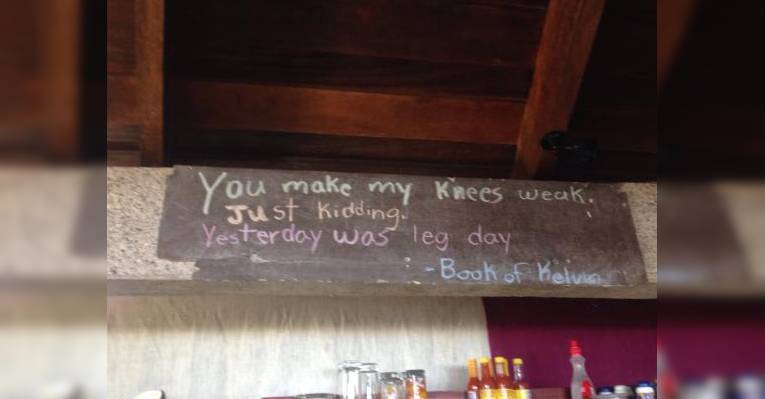 You make my Knees weak.
Just kidding.
Yesterday was leg day
-Book of Kelvin